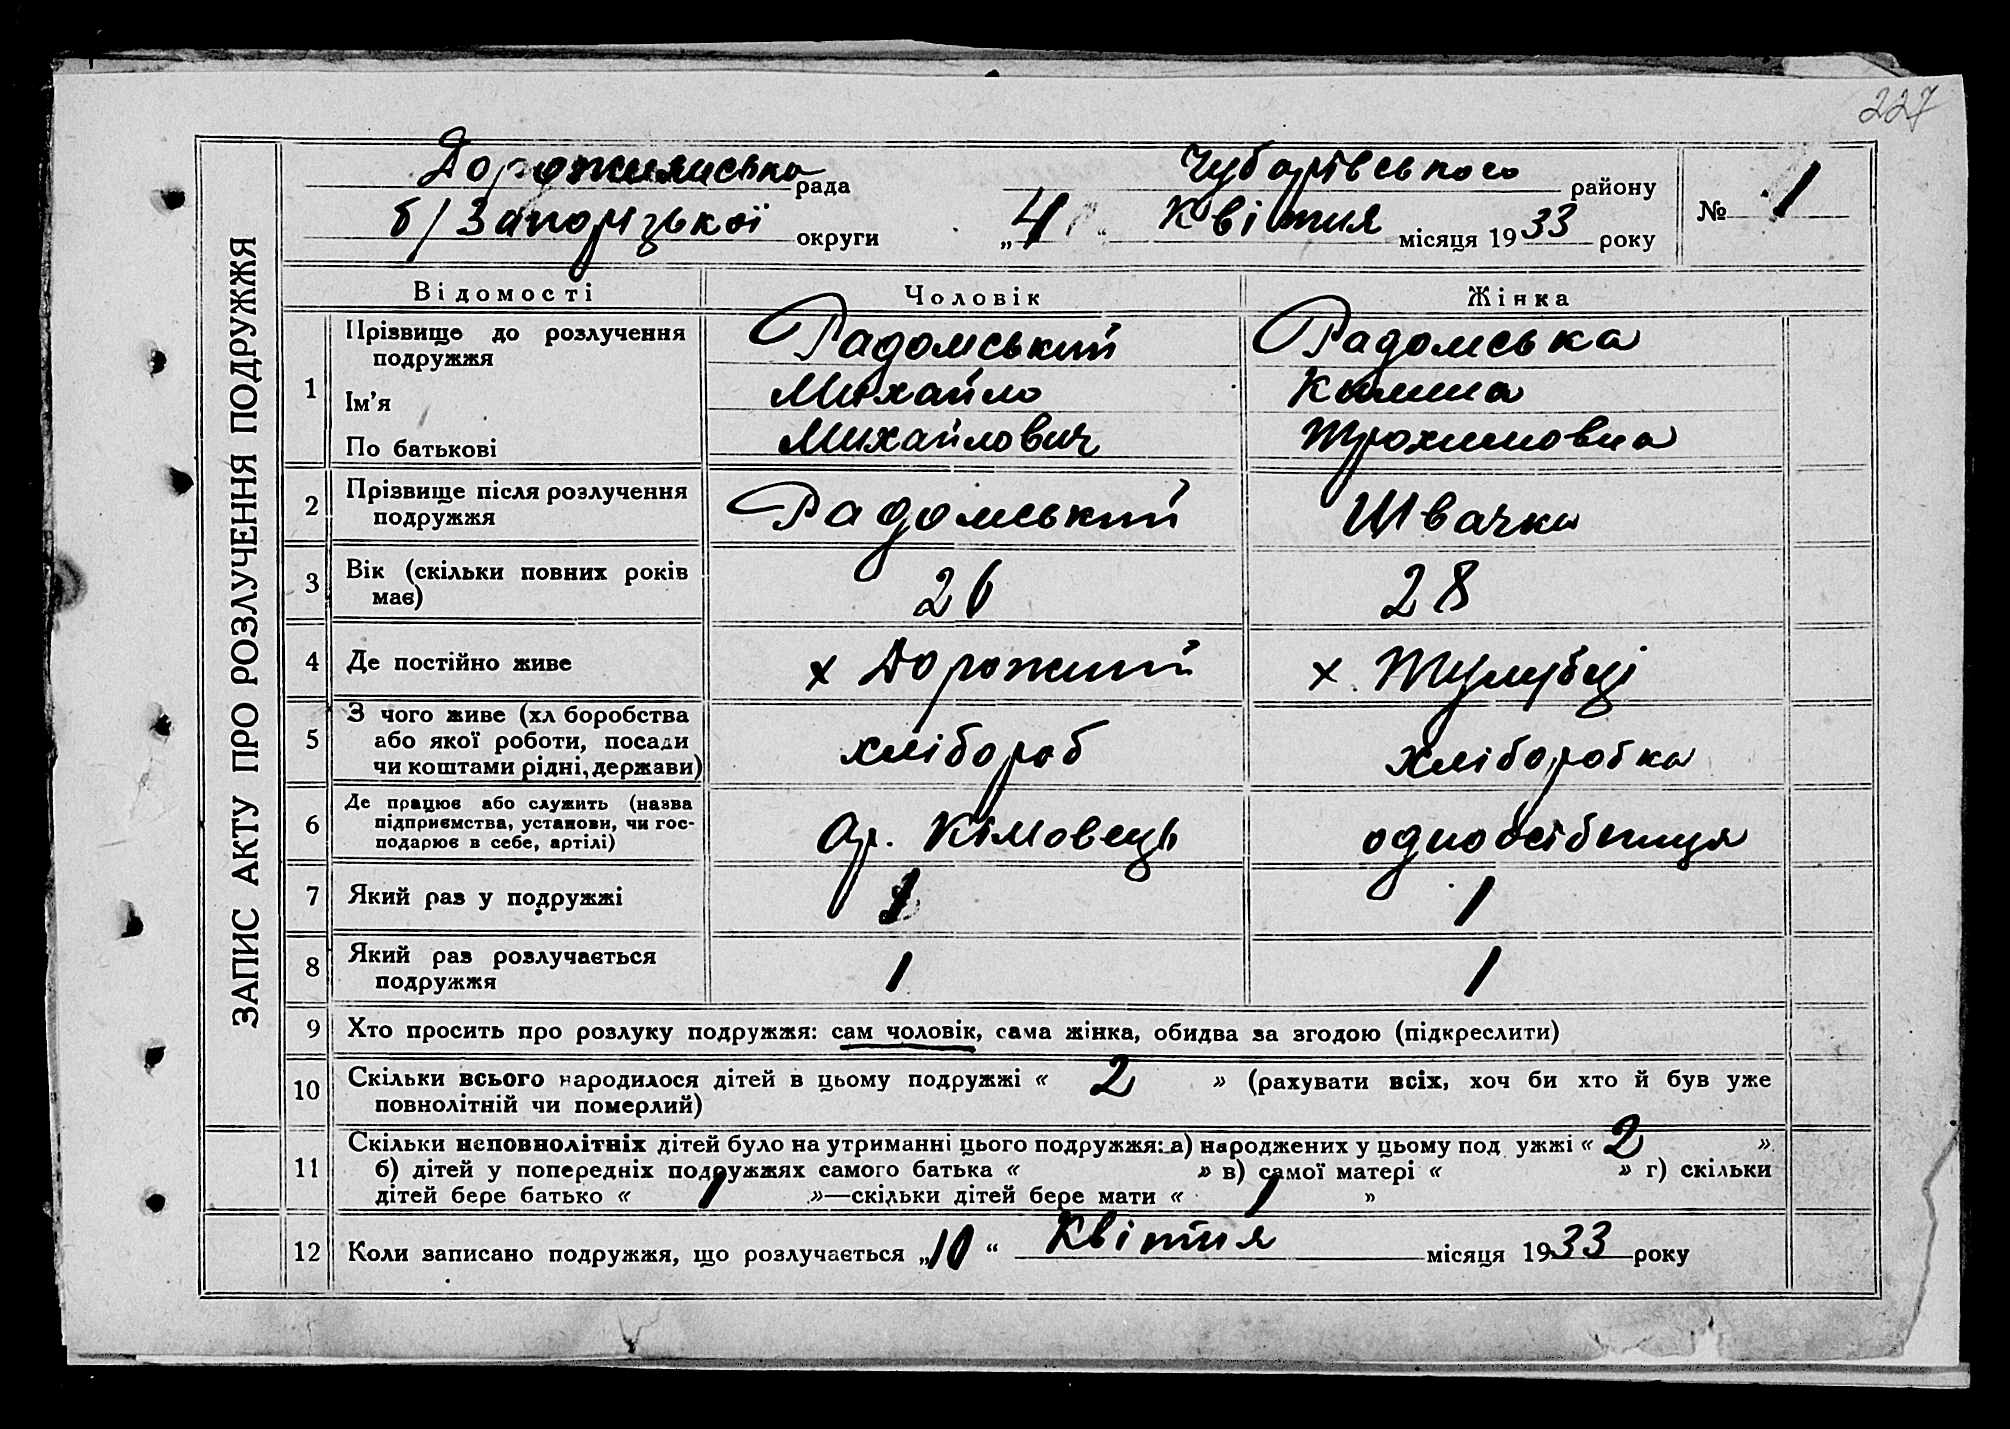 227
ЗАПИС АКТУ ПРО РОЗЛУЧЕННЯ ПОДРУЖЖЯ
рада Чубарівського району
б/Запорізької округи „4“ Квітня місяця 1933 року № 1
Відомості Чоловік Жінка
1 Прізвище до розлучення Радомський Радомська
подружжя
Ім'я Михайло
По батькові Михайлович Трохимовна
2 Прізвище після розлучення Радомський Швачка
подружжя
3 Вік (скільки повних років 26 28
має)
4 Де постійно живе х Дорожний х Тулубці
5 З чого живе (хл боробства хлібороб хліборобка
або якої роботи, посади
чи коштами рідні, держави)
6 Де працює або служить (назва Ар. Кімовець одноосібниця
підприємства, установи, чи гос-
подарює в себе, артілі)
7 Який раз у подружжі 1 1
8 Який раз розлучається 1 1
подружжя
9 Хто просить про розлуку подружжя: сам чоловік, сама жінка, обидва за згодою (підкреслити)
10 Скільки всього народилося дітей в цьому подружжі « 2 » (рахувати всіх, хоч би хто й був уже
повнолітній чи померлий)
11 Скільки неповнолітніх дітей було на утриманні цього подружжя: а) народжених у цьому под ужжі « 2 »
б) дітей у попередніх подружжях самого батька « » в) самої матері « » г) скільки
дітей бере батько « 1 »—скільки дітей бере мати « 1 »
12 Коли записано подружжя, що розлучається „10“ Квітня місяця 1933 року